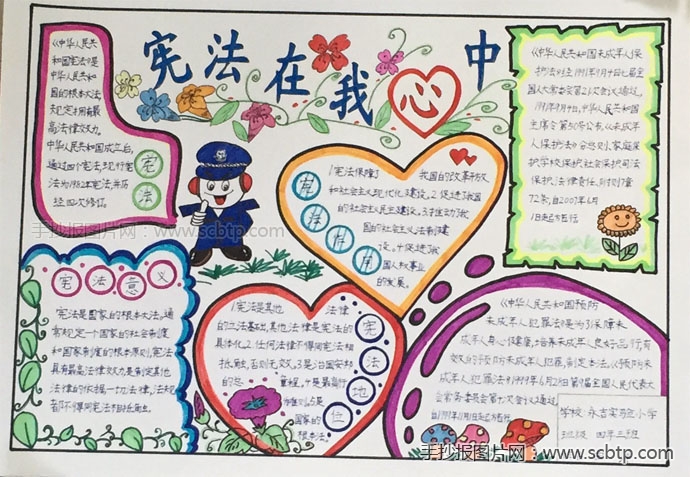 宪法在我心中
《中华人民共
和国宪法》是
中华人民共和
国的根本大法,
规定拥有最
高法律效力。
中华人民共和国成立后,
通过四个宪法,现行宪
法为1982年宪法,并历
经四次修订。
宪法
宪法意义
宪法是国家的根本大法,通
常规定一个国家的社会制度
和国家制度的根本原则,宪法
具有最高法律效力,是制定其他
法律的依据,一切法律,法规
都不得同宪法相抵触。
1宪法保障了 我国的改革开放
和社会主义现代化建设。2促进了我国
的社会主义民主建设。3
的社会主义法制建
设。4促进了我
国人权事业
的发展。
1宪法是其他 法律
的立法基础,其他法律是宪法的
具体化。2任何法律不得同宪法相
抵触,否则无效。3是治国安邦
的总 章程,是最高行
为准则。5是
国家的
根本法。
宪法地位
《中华人民共和国未成年人保
护法》经1991年9月4日七届全
国人大常委会第21次会议通过,
1991年9月4日,中华人民共和国
主席令第50号公布。《未成年
人保护法》分总则、家庭保
护学校保护社会保护司法
保护、法律责任、附则7章
72条,自2007年6月
1日起施行。
《中华人民共和国预防
未成年人犯罪法》是为了保障未
成年人身心健康,培养未成年人良好品行,有
效的预防未成年人犯罪,制定本法。《预防未
成年人犯罪法》1999年6月28日第9届全国人民代表大
会常务委员会第十次会议通过
自1999年11月1日起施行
学校:永吉实验小学
班级 四年三班
手抄报图片网:www.scbtp.com
手抄报图片网:www.scbtp.com